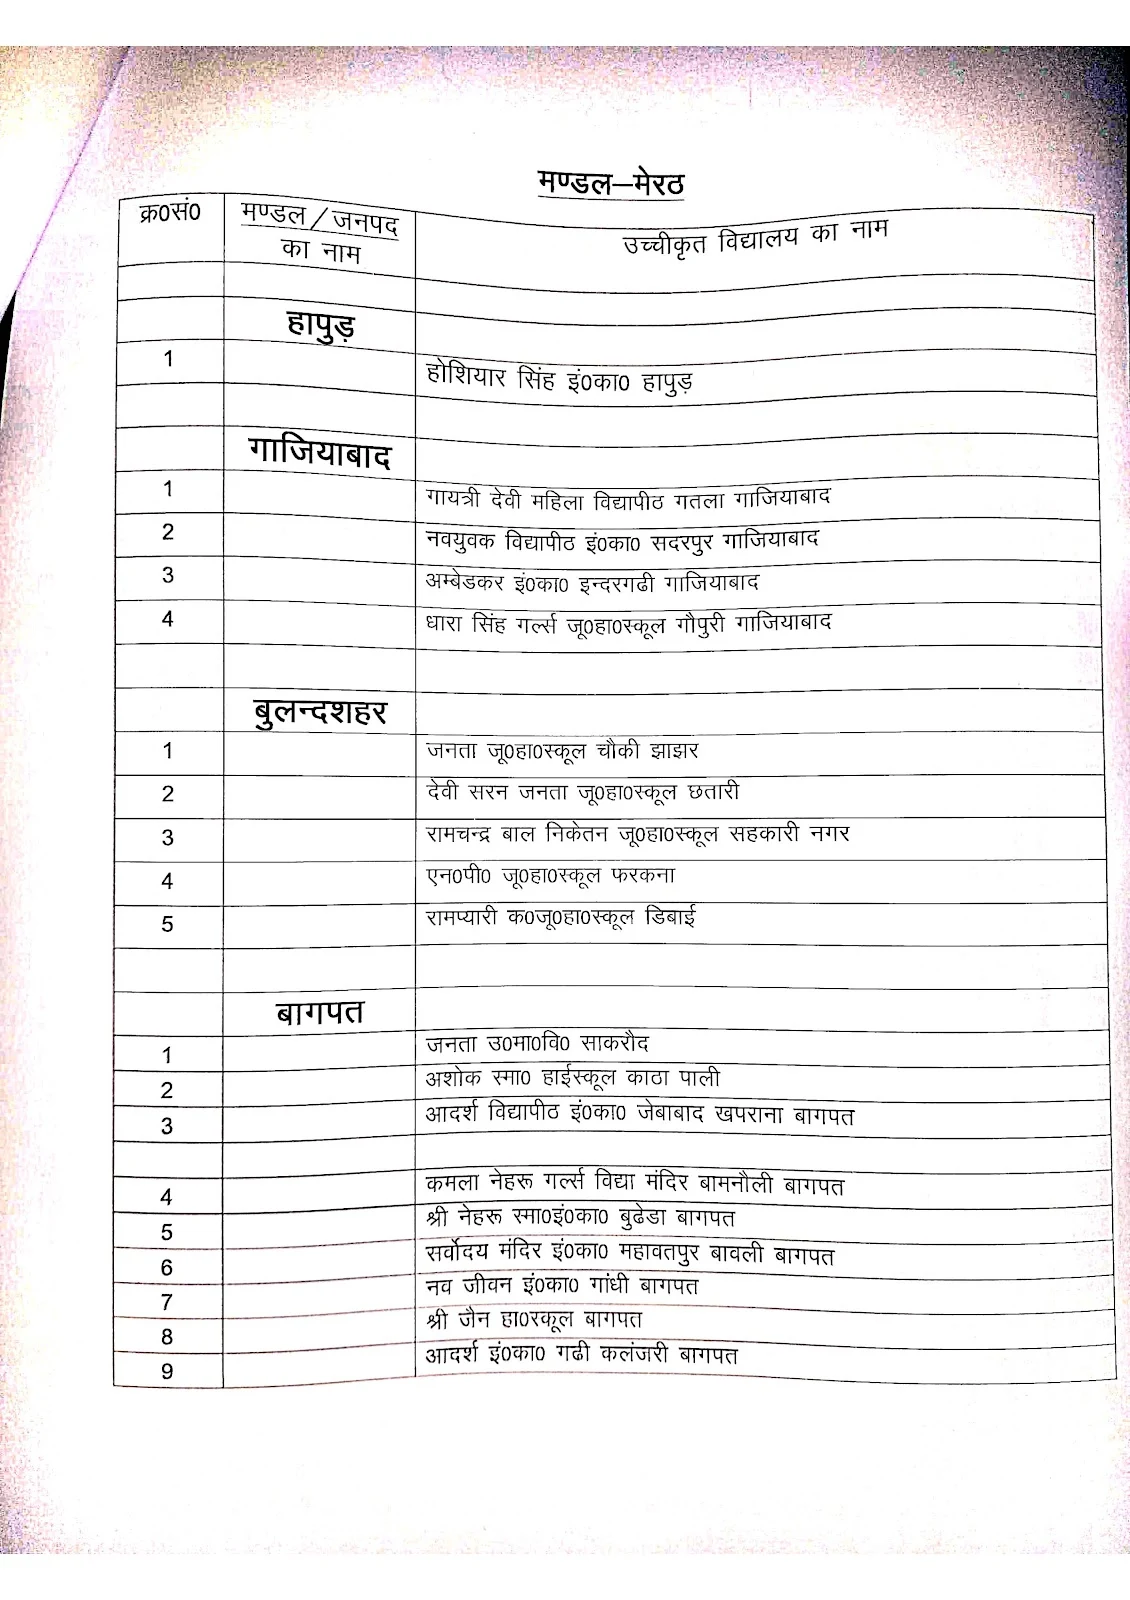 मण्डल–मेरठ
क्र0सं0 मण्डल/जनपद का नाम उच्चीकृत विद्यालय का नाम
हापुड़
1 होशियार सिंह इं0का0 हापुड़
गाजियाबाद
1 गायत्री देवी महिला विद्यापीठ गतला गाजियाबाद
2 नवयुवक विद्यापीठ इं0का0 सदरपुर गाजियाबाद
3 अम्बेडकर इं0का0 इन्दरगढी गाजियाबाद
4 धारा सिंह गर्ल्स जू0हा0स्कूल गौपुरी गाजियाबाद
बुलन्दशहर
1 जनता जू0हा0स्कूल चौकी झाझर
2 देवी सरन जनता जू0हा0स्कूल छतारी
3 रामचन्द्र बाल निकेतन जू0हा0स्कूल सहकारी नगर
4 एन0पी0 जू0हा0स्कूल फरकना
5 रामप्यारी क0जू0हा0स्कूल डिबाई
बागपत
1 जनता उ0मा0वि0 साकरौद
2 अशोक स्मा0 हाईस्कूल काठा पाली
3 आदर्श विद्यापीठ इं0का0 जेबाबाद खपराना बागपत
4 कमला नेहरू गर्ल्स विद्या मंदिर बामनौली बागपत
5 श्री नेहरू स्मा0इं0का0 बुढेडा बागपत
6 सर्वोदय मंदिर इं0का0 महावतपुर बावली बागपत
7 नव जीवन इं0का0 गांधी बागपत
8 श्री जैन हा0स्कूल बागपत
9 आदर्श इं0का0 गढी कलंजरी बागपत